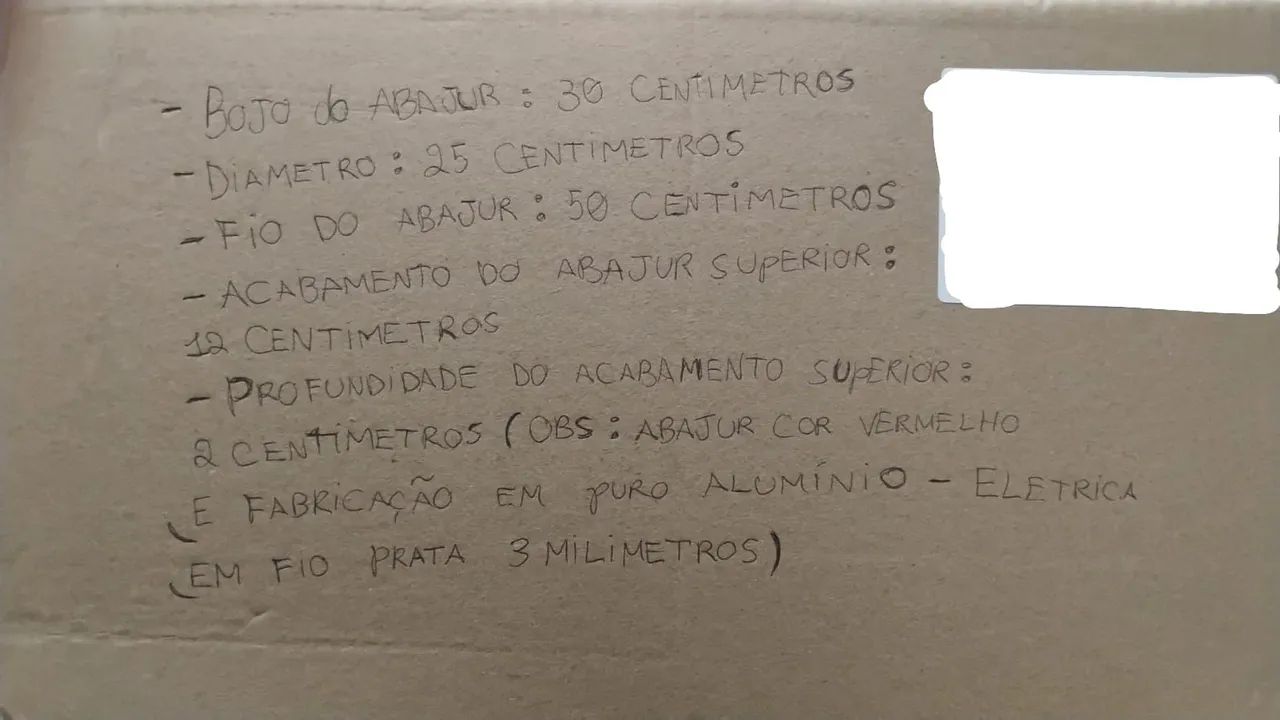 - BOJO do ABAJUR : 30 CENTIMETROS
- DiAMETRO : 25 CENTIMETROS
- FiO DO ABAJUR : 50 CENTiMETROS
- ACABAMENTO DO ABAJUR SUPERIOR :
12 CENTiMETROS
- PROFUNDiDADE DO ACABAMENTO SUPERiOR :
2 CENTiMETROS (OBS : ABAJUR COR VERMELHO
E FABRiCAÇÃO EM PURO ALUMÍNiO - ELETRiCA
EM FIO PRATA 3 MiLiMETROS)